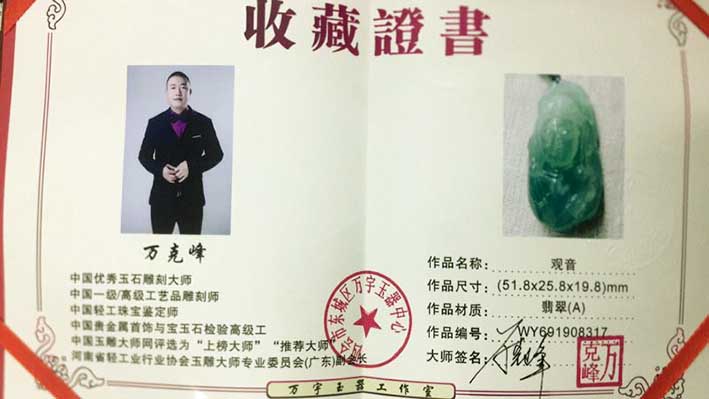 收藏證書
万克峰
中国优秀玉石雕刻大师
中国一级/高级工艺品雕刻师
中国轻工珠宝鉴定师
中国贵金属首饰与宝玉石检验高级工
中国玉雕大师网评选为“上榜大师”“推荐大师”
河南省轻工业行业协会玉雕大师专业委员会(广东)副会长
市东城区万字玉器中心
作品名称: 观音
作品尺寸: (51.8x25.8x19.8)mm
作品材质: 翡翠(A)
作品编号: WY691908317
大师签名: 万克峰
万克峰
万字玉器工作室